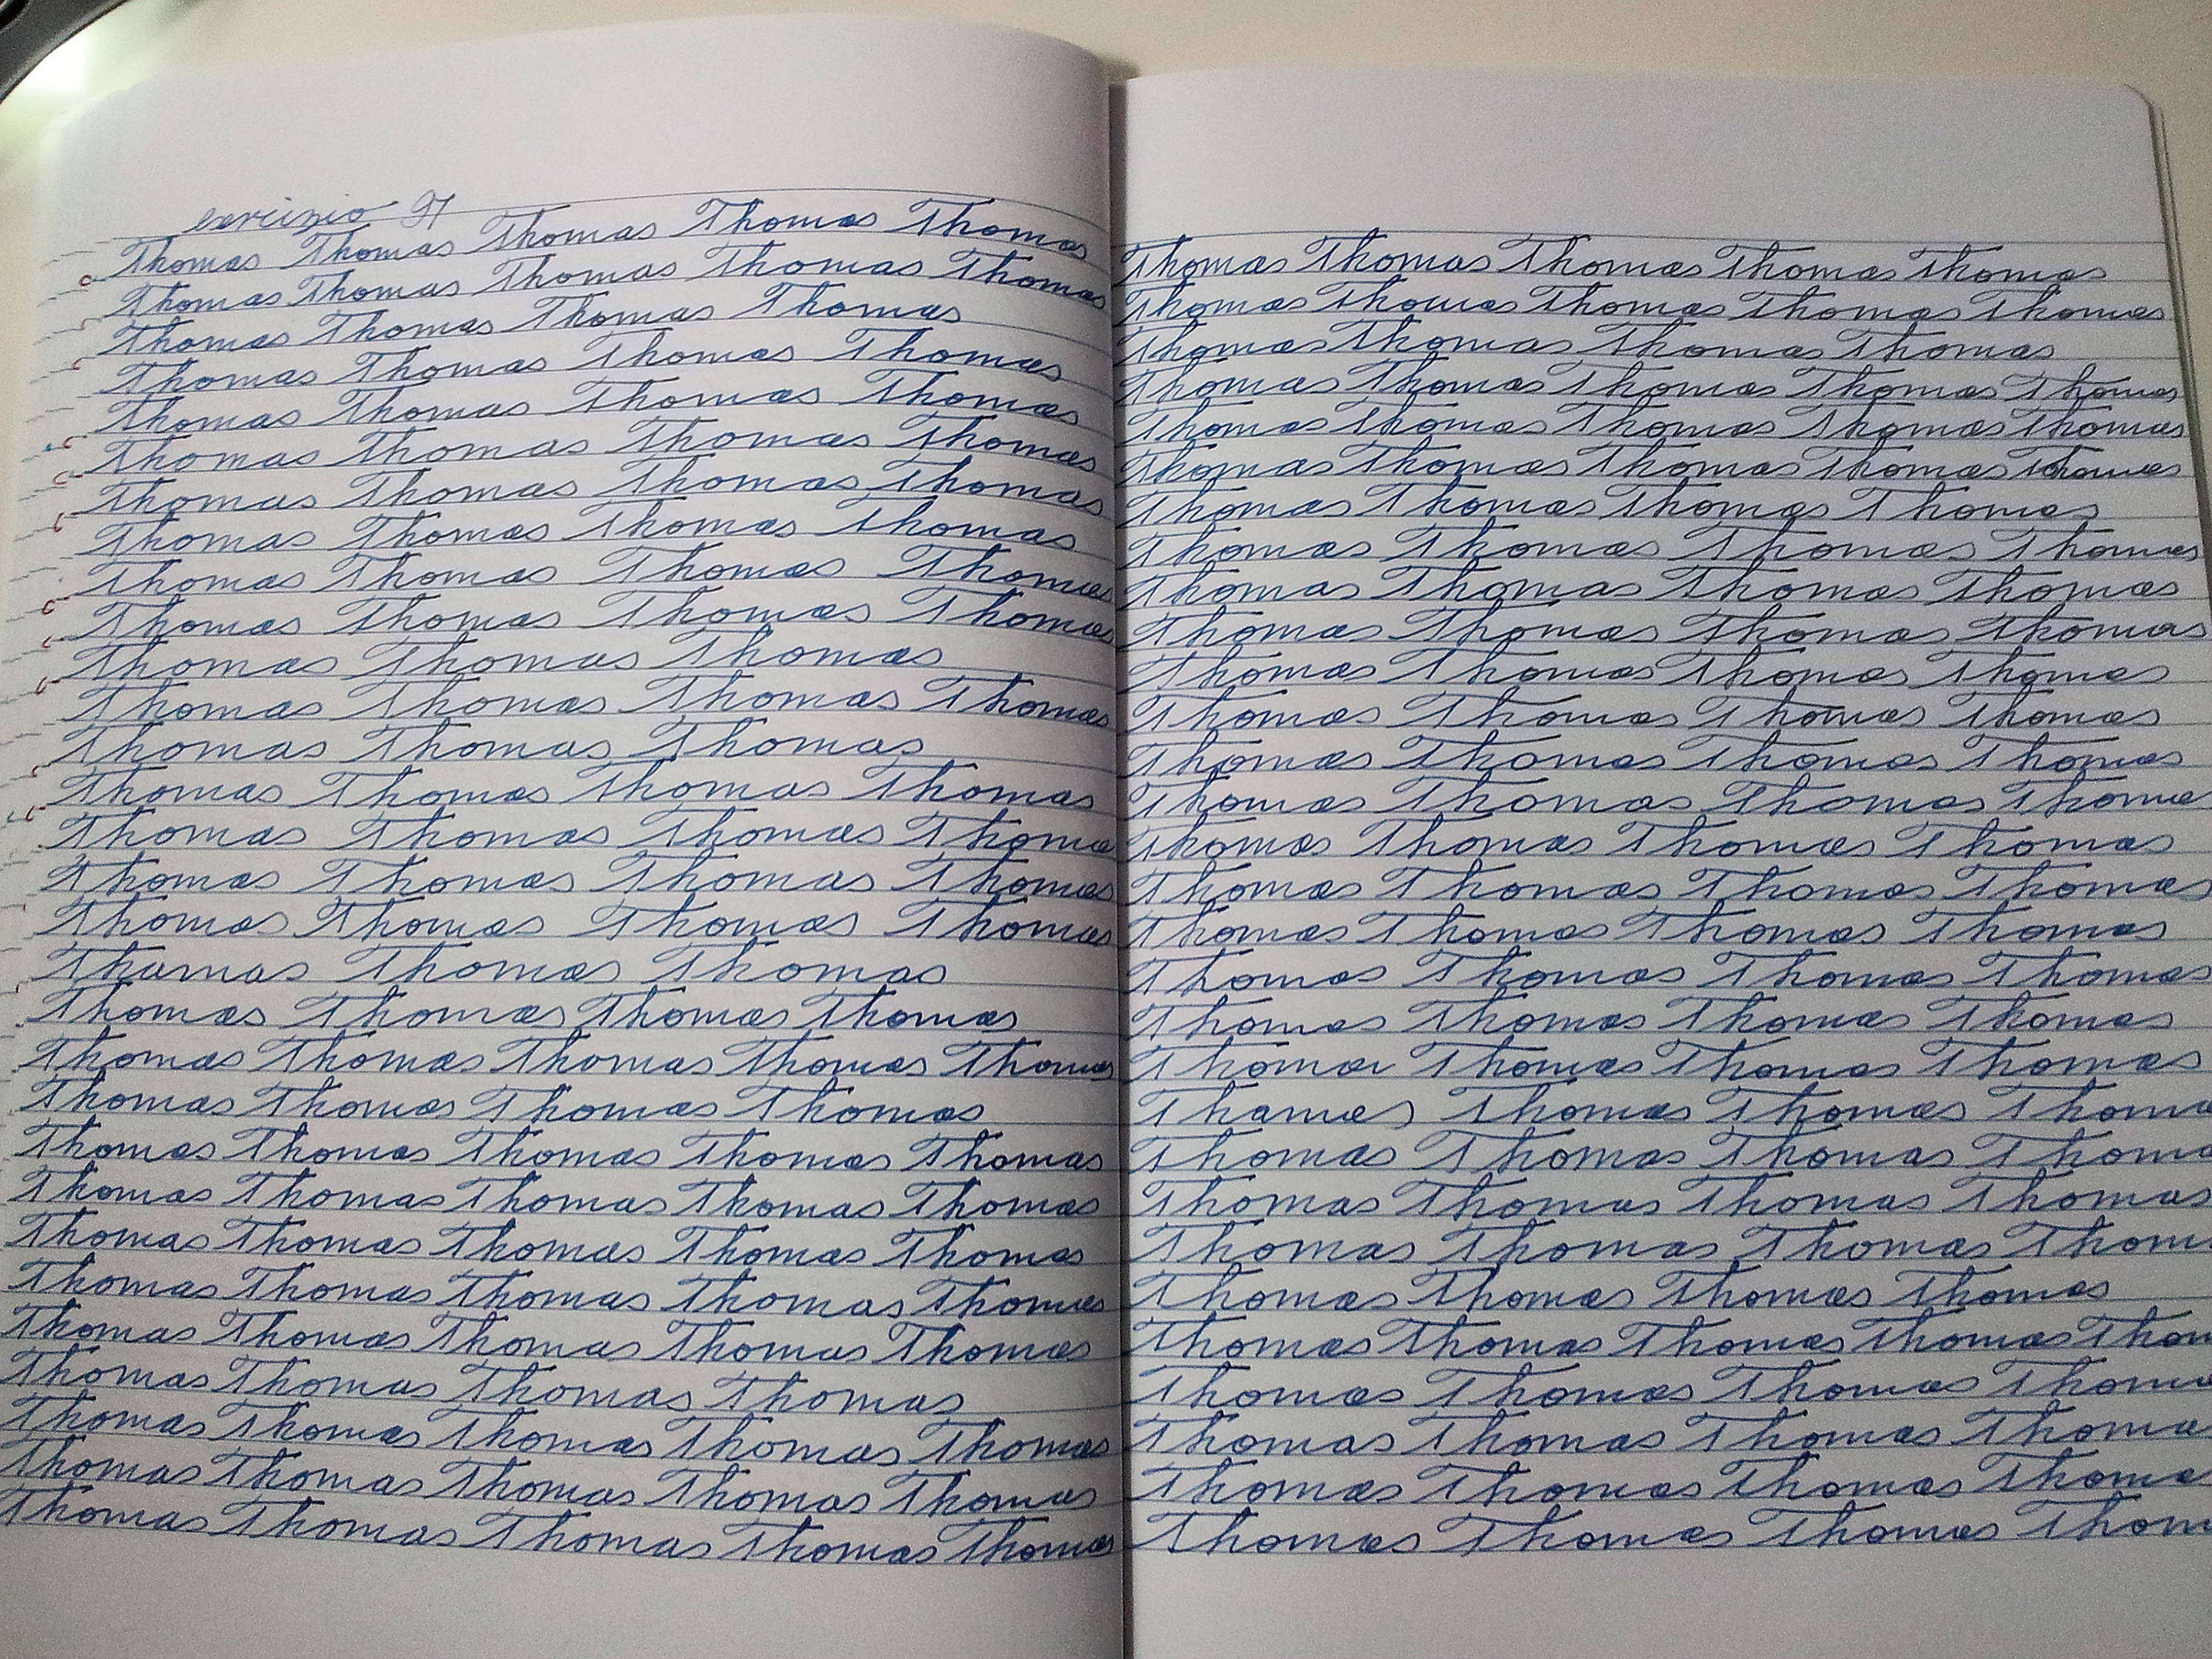 esercizio 97
Thomas Thomas Thomas Thomas Thomas
Thomas Thomas Thomas Thomas Thomas
Thomas Thomas Thomas Thomas
Thomas Thomas Thomas Thomas
Thomas Thomas Thomas Thomas
Thomas Thomas Thomas Thomas
Thomas Thomas Thomas Thomas
Thomas Thomas Thomas Thomas
Thomas Thomas Thomas Thomas
Thomas Thomas Thomas Thomas
Thomas Thomas Thomas
Thomas Thomas Thomas Thomas
Thomas Thomas Thomas
Thomas Thomas Thomas Thomas
Thomas Thomas Thomas Thoma
Thomas Thomas Thomas Thomas
Thomas Thomas Thomas Thomas
Thamas Thomas Thomas
Thomas Thomas Thomas Thomas
Thomas Thomas Thomas Thomas Thomas
Thomas Thomas Thomas Thomas
Thomas Thomas Thomas Thomas Thomas
Thomas Thomas Thomas Thomas Thomas
Thomas Thomas Thomas Thomas Thomas
Thomas Thomas Thomas Thomas Thomas
Thomas Thomas Thomas Thomas Thomas
Thomas Thomas Thomas Thomas
Thomas Thomas Thomas Thomas Thomas
Thomas Thomas Thomas Thomas Thomas
Thomas Thomas Thomas Thomas Thomas
Thomas Thomas Thomas Thomas Thomas
Thomas Thomas Thomas Thomas Thomas
Thomas Thomas Thomas Thomas
Thomas Thomas Thomas Thomas Thomas
Thomas Thomas Thomas Thomas Thomas
Thomas Thomas Thomas Thomas Thomas
Thomas Thomas Thomas Thomas
Thomas Thomas Thomas Thomas
Thomas Thomas Thomas Thomas
Thomas Thomas Thomas Thomas
Thomas Thomas Thomas Thomas
Thomas Thomas Thomas Thomas
Thomas Thomas Thomas Thomas
Thomas Thomas Thomas Thoma
Thomas Thomas Thomas Thomas
Thomas Thomas Thomas Thomas
Thomas Thomas Thomas Thomas
Thomas Thomas Thomas Thomas
Thomas Thomas Thomas Thomas
Thomas Thomas Thomas Thomas
Thamas Thomas Thomas Thoma
Thomas Thomas Thomas Thoma
Thomas Thomas Thomas Thomas
Thomas Thomas Thomas Thom
Thomas Thomas Thomas Thomas
Thomas Thomas Thomas Thomas Thom
Thomas Thomas Thomas Thoma
Thomas Thomas Thomas Thoma
Thomas Thomas Thomas Thoma
Thomas Thomas Thomas Thom